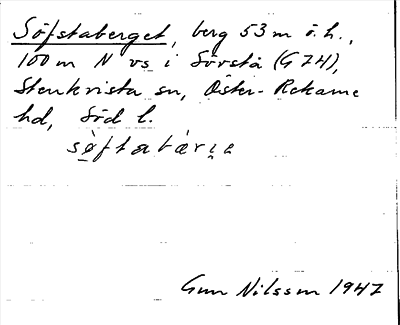 Söfstaberget, berg 53 m ö.h.,
100 m N vs i Sörsta (G 74),
Stenkvista sn, Öster-Rekarne
hd, Söd l.
Gun Nilsson 1947